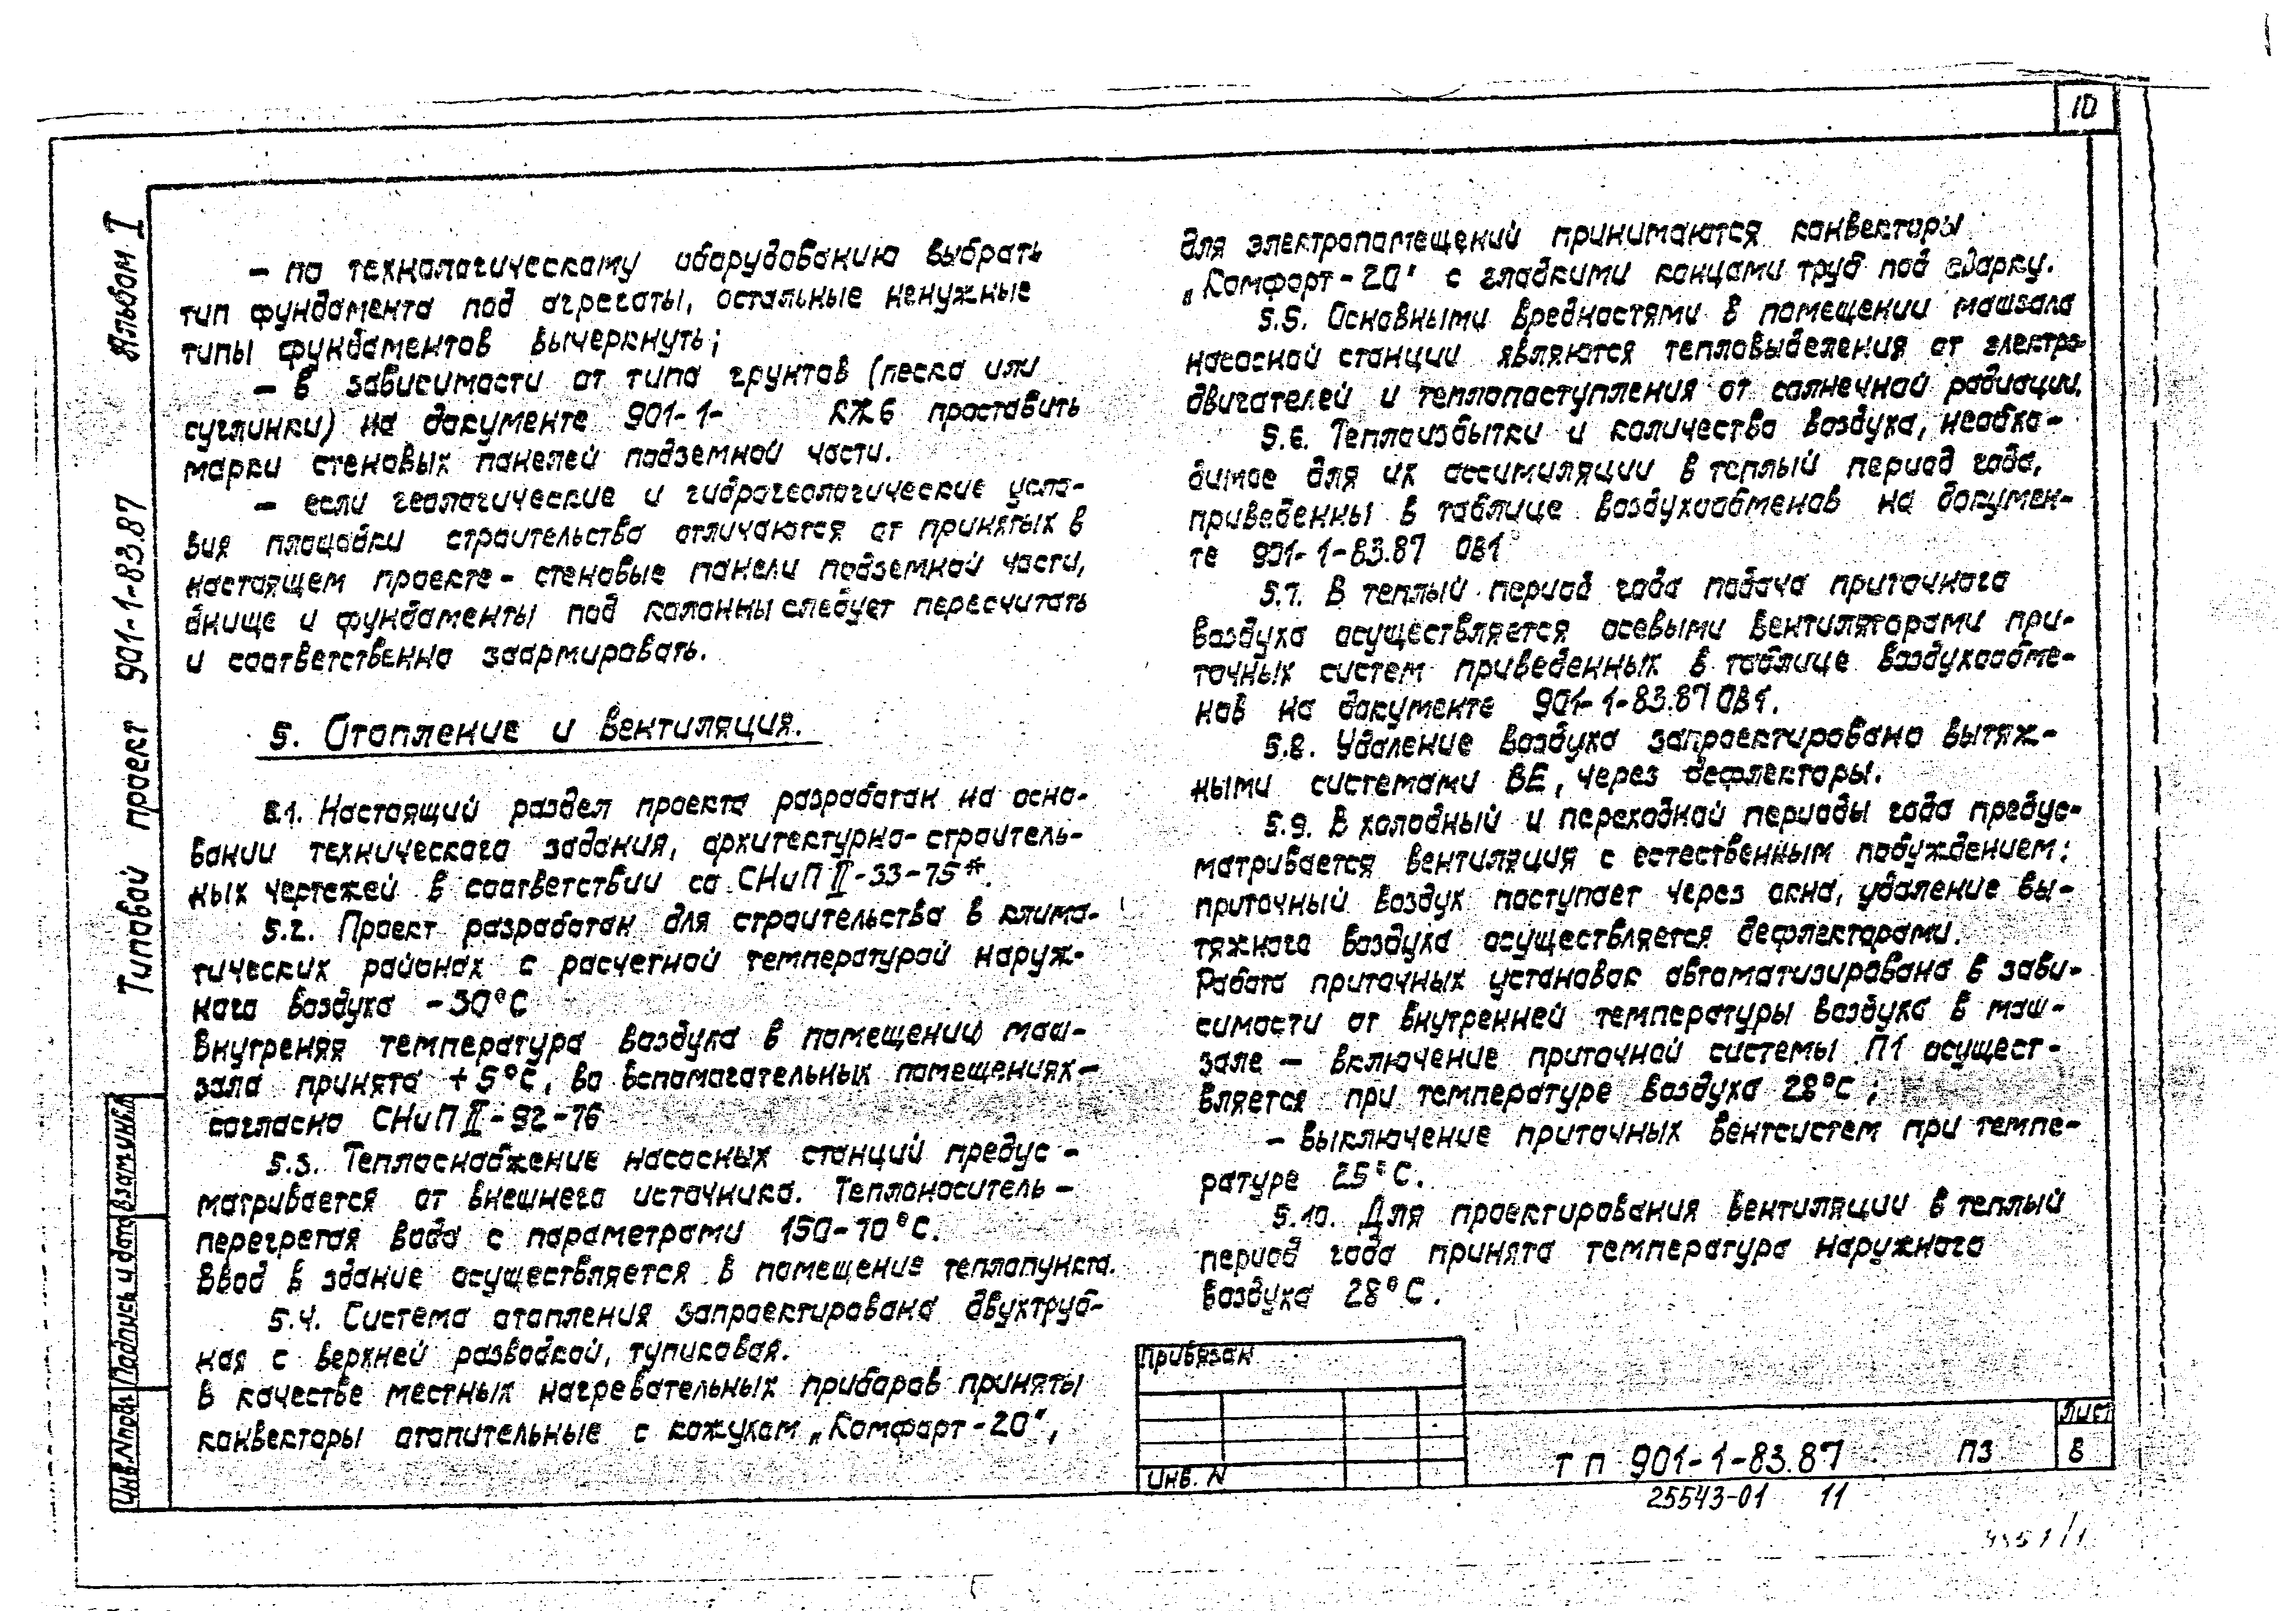 10
Альбом I
Типовой проект 901-1-83.87
– по технологическому оборудованию выбрать
тип фундамента под агрегаты, остальные ненужные
типы фундаментов вычеркнуть;
– в зависимости от типа грунтов (песка или
суглинки) на документе 901-1- КЖ6 проставить
марки стеновых панелей подземной части.
– если геологические и гидрогеологические усло-
вия площадки строительства отличаются от принятых в
настоящем проекте – стеновые панели подземной части,
днище и фундаменты под колонны следует пересчитать
и соответственно заармировать.
5. Отопление и вентиляция.
5.1. Настоящий раздел проекта разработан на осно-
вании технического задания, архитектурно-строитель-
ных чертежей в соответствии со СНиП II-33-75*.
5.2. Проект разработан для строительства в клима-
тических районах с расчетной температурой наруж-
ного воздуха -30°С
Внутреняя температура воздуха в помещении маш-
зала принята +5°С, во вспомогательных помещениях –
согласно СНиП II-92-76
5.3. Теплоснабжение насосных станций предус-
матривается от внешнего источника. Теплоноситель –
перегретая вода с параметрами 150-70°С.
Ввод в здание осуществляется в помещение теплопункта.
5.4. Система отопления запроектирована двухтруб-
ная с верхней разводкой, тупиковая.
В качестве местных нагревательных приборов приняты
конвекторы отопительные с кожухом „Комфорт-20“,
для электропомещений принимаются конвекторы
„Комфорт-20“ с гладкими концами труб под сварку.
5.5. Основными вредностями в помещении машзала
насосной станции являются тепловыделения от электро-
двигателей и теплопоступления от солнечной радиации.
5.6. Теплоизбытки и количество воздуха, необхо-
димое для их ассимиляции в теплый период года,
приведенны в таблице воздухообменов на докумен-
те 901-1-83.87 ОВ1
5.7. В теплый период года подача приточного
воздуха осуществляется осевыми вентиляторами при-
точных систем приведенных в таблице воздухообме-
нов на документе 901-1-83.87 ОВ1.
5.8. Удаление воздуха запроектировано вытяж-
ными системами ВЕ, через дефлекторы.
5.9. В холодный и переходной периоды года предус-
матривается вентиляция с естественным побуждением:
приточный воздух поступает через окна, удаление вы-
тяжного воздуха осуществляется дефлекторами.
Работа приточных установок автоматизирована в зави-
симости от внутренней температуры воздуха в маш-
зале – включение приточной системы П1 осущест-
вляется при температуре воздуха 28°С;
– выключение приточных вентсистем при темпе-
ратуре 25°С.
5.10. Для проектирования вентиляции в теплый
период года принята температура наружного
воздуха 28°С.
Взам инв.N
Подпись и дата
Инв.N подл.
Привязан
Инв. N
ТП 901-1-83.87 ПЗ
Лист
8
25543-01 11